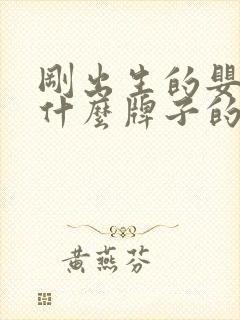 剛出生的嬰
什麼牌子的
黃燕芬